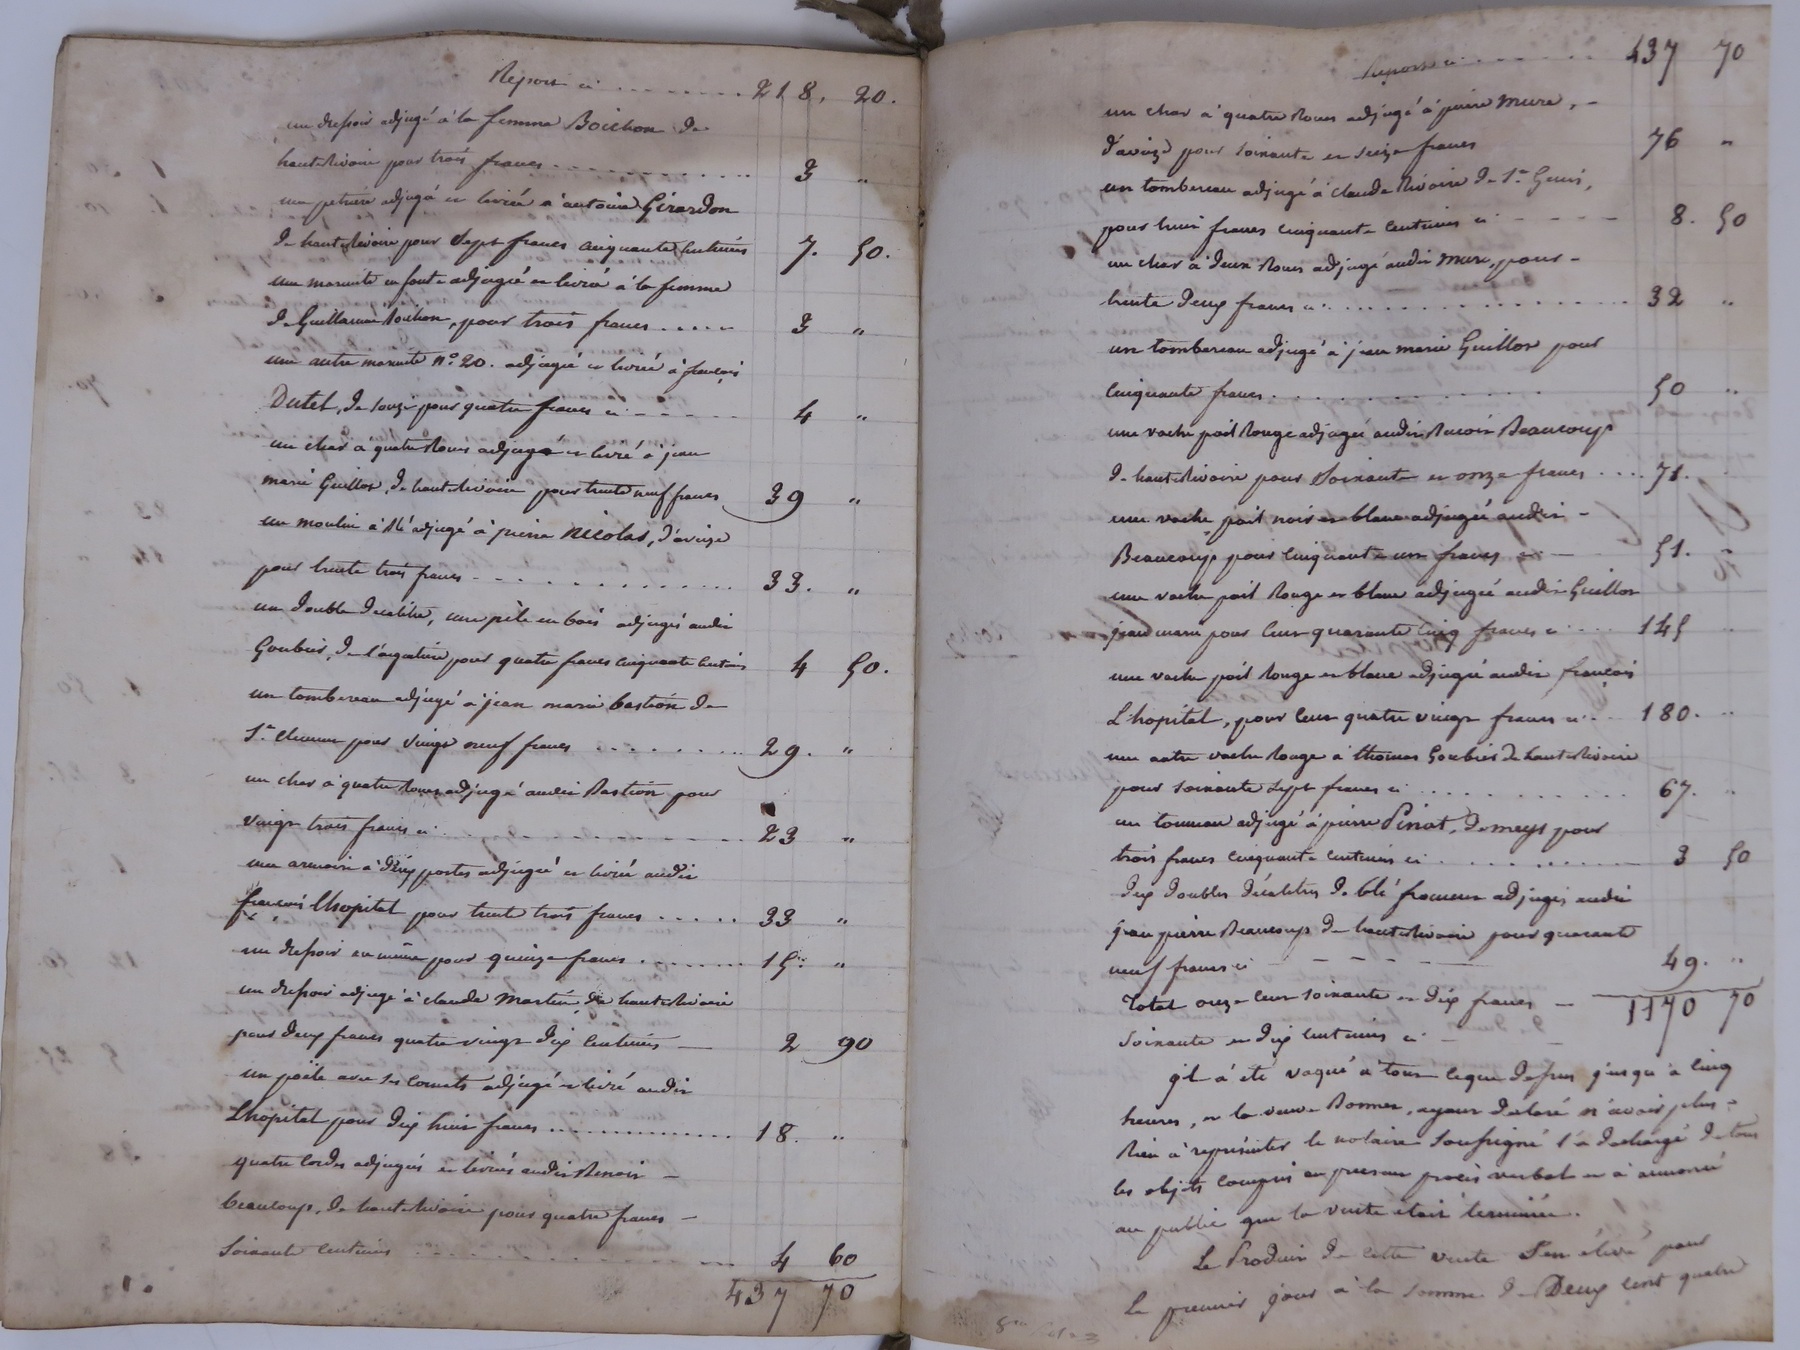 Report ci ........ 218. 20.
un dressoir adjugé à la femme Boichon de
hauterivoire pour trois francs ........ 3 "
une petriere adjugé et livrée à antoine Girardon
de hauterivoire pour sept francs cinquante centimes 7. 50.
une marmite en fonte adjugée et livrée à la femme
de Guillaume Boichon, pour trois francs ..... 3 "
une autre marmite n° 20. adjugée et livrée à françois
Dutel, de souzi pour quatre francs ci ------ 4 "
un char à quatre Roues adjugé et livré à jean
marie Guillot, de hauterivoire pour trente neuf francs 39 "
un moulin à blé adjugé à pierre Nicolas, d'avaize
pour trente trois francs ........ 33. "
un double decalitre, une pèle en bois adjugés audit
Goubier, de l'argentière pour quatre francs cinquante centimes 4 50.
un tombereau adjugé à jean marie bastion de
St. clement pour vingt neuf francs ........ 29. "
un char à quatre Roues adjugé audit Bastion pour
vingt trois francs ci ........ 23 "
une armoire à deux portes adjugée et livrée audit
françois Lhopital pour trente trois francs ..... 33 "
un dressoir au même pour quinze francs ........ 15. "
un dressoir adjugé à claude Martin, de hauterivoire
pour deux francs quatre vingt dix centimes — 2 90
un poële avec ses cornets adjugé et livré audit
Lhopital pour dix huit francs ............. 18. "
quatre cordes adjugées et livrées audit Benoit —
beaucoup, de hauterivoire pour quatre francs —
soixante centimes ........ 4 60
437 70
Report ci ........ 437 70
un char à quatre Roues adjugé à pierre Mure, -
d'avaize pour soixante et seize francs 76 "
un tombereau adjugé à claude Rivoire de St. Genis,
pour huit francs cinquante centimes ci - - - - - 8. 50
un char à deux Roues adjugé audit Mure, pour -
trente deux francs ci ........ 32 "
un tombereau adjugé à jean marie Guillot pour
cinquante francs ........ 50 "
une vache poil Rouge adjugée audit Benoit Beaucoup
de hauterivoire pour soixante et onze francs .... 71. "
une vache poil noir et blanc adjugée audit -
Beaucoup pour cinquante un francs ci — 51. "
une vache poil Rouge et blanc adjugée audit Guillot
jean marie pour cent quarante cinq francs ci .... 145 "
une vache poil Rouge et blanc adjugée audit françois
L'hopital, pour cent quatre vingt francs ci .. 180. "
une autre vache Rouge à thomas Goubier de hauterivoire
pour soixante sept francs ci ........ 67. "
un tonneau adjugé à pierre Pinat, de meys pour
trois francs cinquante centimes ci ........ 3 50
dix doubles décalitres de blé froment adjugés audit
jean pierre Beaucoup de hauterivoire pour quarante
neuf francs ci - - - - - 49. "
Total onze cent soixante et dix francs — 1170 70
soixante et dix centimes ci -
il a été vaqué à tout ceque dessus jusqu'à cinq
heures, et la veuve Bonnet, ayant declaré n'avoir plus -
Rien à représenter le notaire soussigné l'a dechargé de tous
les objets compris au present procès verbal et a annoncé
au public que la vente était terminée.
Le Produit de cette vente s'en élévé pour
le premier jour à la somme de Deux cent quatre